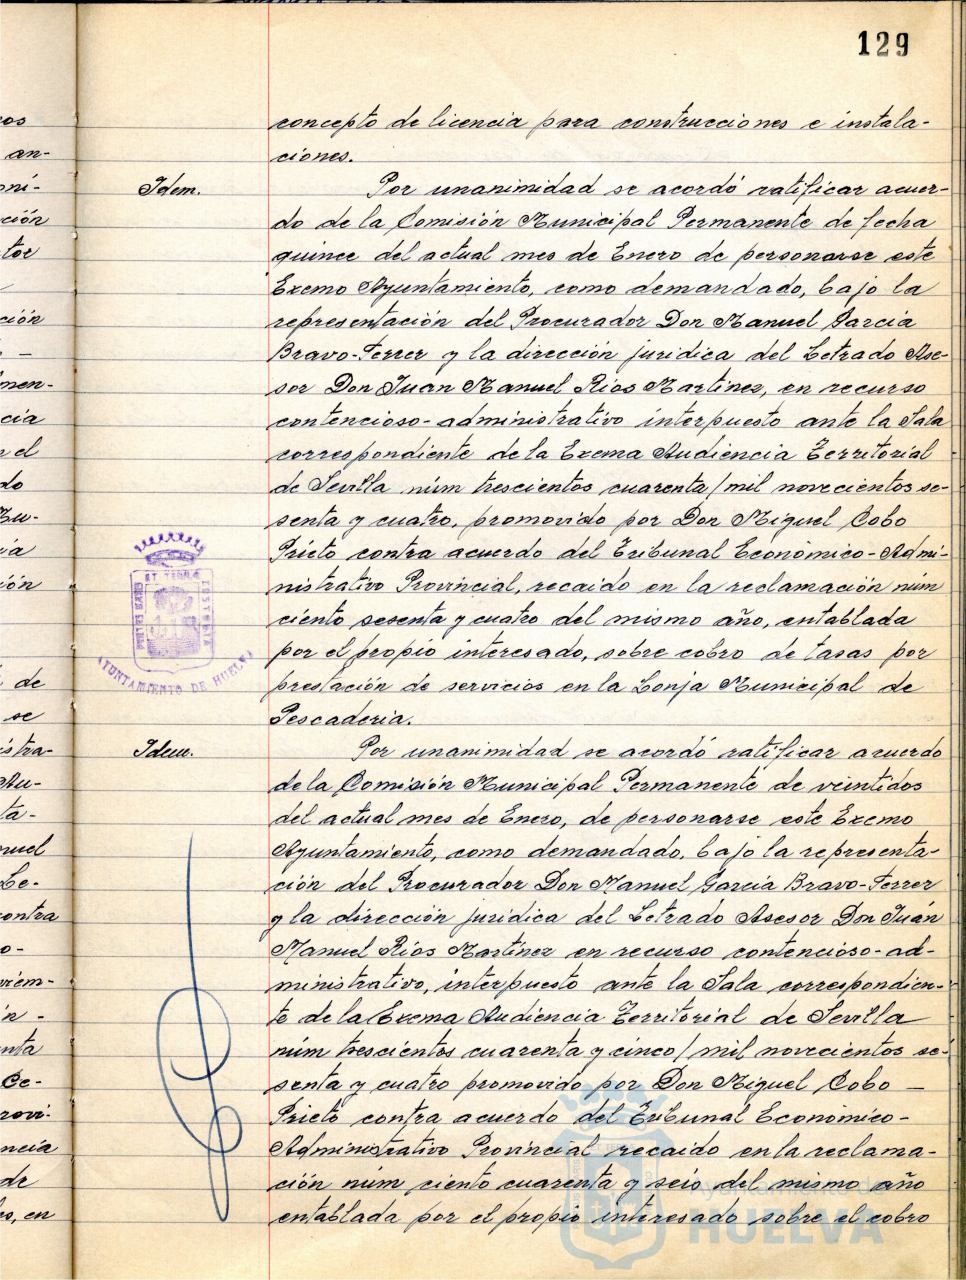 129
concepto de licencia para construcciones e instala-
ciones.
Idem. Por unanimidad se acordó ratificar acuer-
do de la Comisión Municipal Permanente de fecha
quince del actual mes de Enero de personarse este
Excmo Ayuntamiento, como demandado, bajo la
representación del Procurador Don Manuel García
Bravo-Ferrer y la dirección juridica del Letrado Ase-
sor Don Juan Manuel Rios Martínez, en recurso
contencioso-administrativo interpuesto ante la Sala
correspondiente de la Excma Audiencia Territorial
de Sevilla núm trescientos cuarenta/mil novecientos se-
senta y cuatro, promovido por Don Miguel Cobo
Prieto contra acuerdo del Tribunal Económico-Admi-
nistrativo Provincial, recaido en la reclamación núm
ciento sesenta y cuatro del mismo año, entablada
por el propio interesado, sobre cobro de tasas por
prestación de servicios en la Lonja Municipal de
Pescaderia.
Idem. Por unanimidad se acordó ratificar acuerdo
de la Comisión Municipal Permanente de veintidos
del actual mes de Enero, de personarse este Excmo
Ayuntamiento, como demandado, bajo la representa-
ción del Procurador Don Manuel García Bravo-Ferrer
y la dirección jurídica del Letrado Asesor Don Juán
Manuel Ríos Martínez en recurso contencioso-ad-
ministrativo, interpuesto ante la Sala correspondien-
te de la Excma Audiencia Territorial de Sevilla
núm trescientos cuarenta y cinco/mil novecientos se-
senta y cuatro promovido por Don Miguel Cobo —
Prieto contra acuerdo del Tribunal Económico-
Administrativo Provincial recaido en la reclama-
ción núm ciento cuarenta y seis del mismo año
entablada por el propio interesado sobre el cobro
AYUNTAMIENTO DE HUELVA
Ayuntamiento de
HUELVA